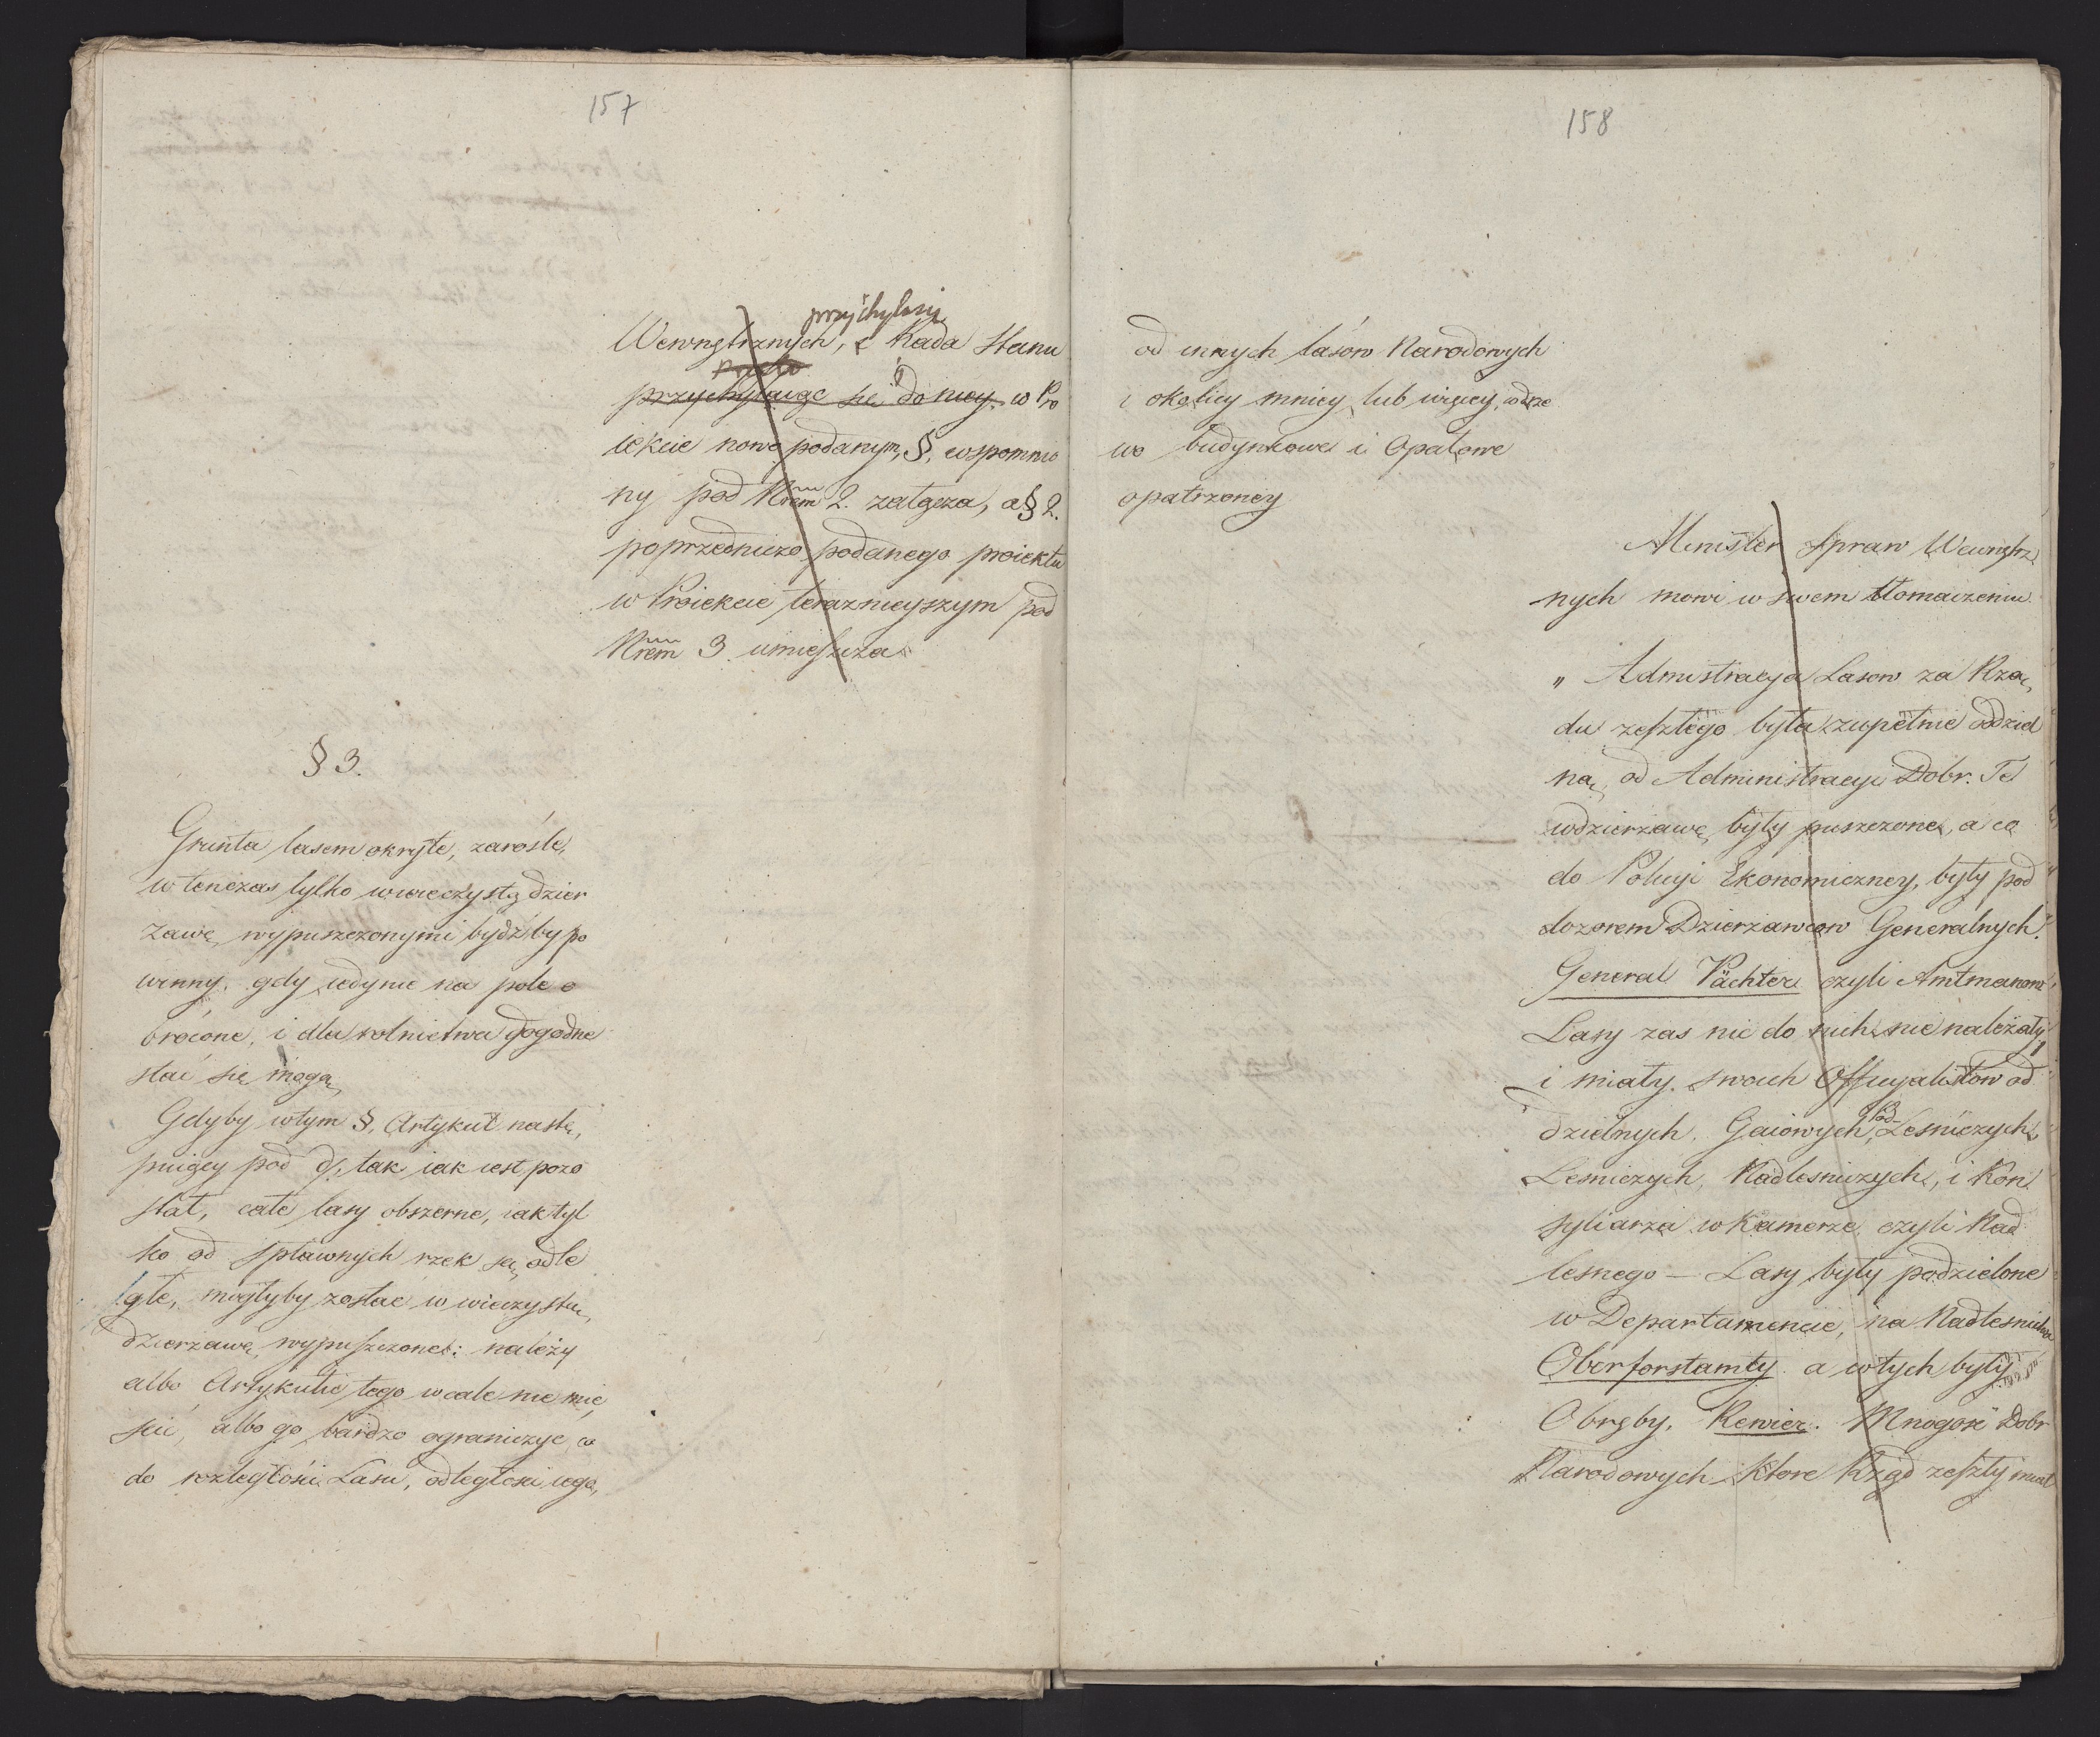 157
przychyla się
Wewnętrznych, i Rada Stanu
przychylaiąc się do niey w Pro
iekcie nowo podanym, §, wspomnio
ny pod Nrem 2. załącza, a § 2.
poprzedniczo podanego proiektu
w Proiekcie terazniejszym pod
Nrem 3 umieszcza
§ 3.
Grunta lasem okryte, zarośle,
w tenczas tylko w wieczystą dzier
żawę wypuszczonymi bydź by po
winny, gdy iedynie na pole o
brócone, i dla rolnictwa dogodne
stać się mogą,
Gdyby w tym §, Artykuł nastę,
puiący pod d, tak iak iest pozo
stał, całe lasy obszerne, iak tyl
ko od spławnych rzek są odle
głe, mogłyby zostać w wieczystą,
dzierżawę wypuszczone: należy
albo Artykułu tego wcale nie mie,
ścić, albo go bardzo ograniczyć co
do rozległości Lasu, odległości iego,
158
od innych lasów Narodowych
i okolicy mniey lub więcey, w drze
wo budynkowe i Opałowe
opatrzoney
Minister Spraw Wewnętrz
nych mowi w swem tłomaczeniu
" Admistracya Lasow za Rzą,
du zeszłego była zupełnie oddziel
ną, od Administracyi Dobr. Te
w dzierzawę były puszczone, a co
do Policyi Ekonomiczney, były pod
dozorem Dzierzawcow Generalnych.
General Pächter czyli Amtmanow
Lasy zas nic do nich nie należały
i miały swoich Officyalistow od
dzielnych, Gaiowych, Pod-Lesniczych
Lesniczych, Nadlesniczych, i Kon
syliarza w Kamerze czyli Nad
lesnego — Lasy były podzielone
w Departamencie, na Nadlesnictwa
Oberforstamty a w tych były
Obręby, Rewier. Mnogość Dobr
Narodowych które Rząd zeszły miał